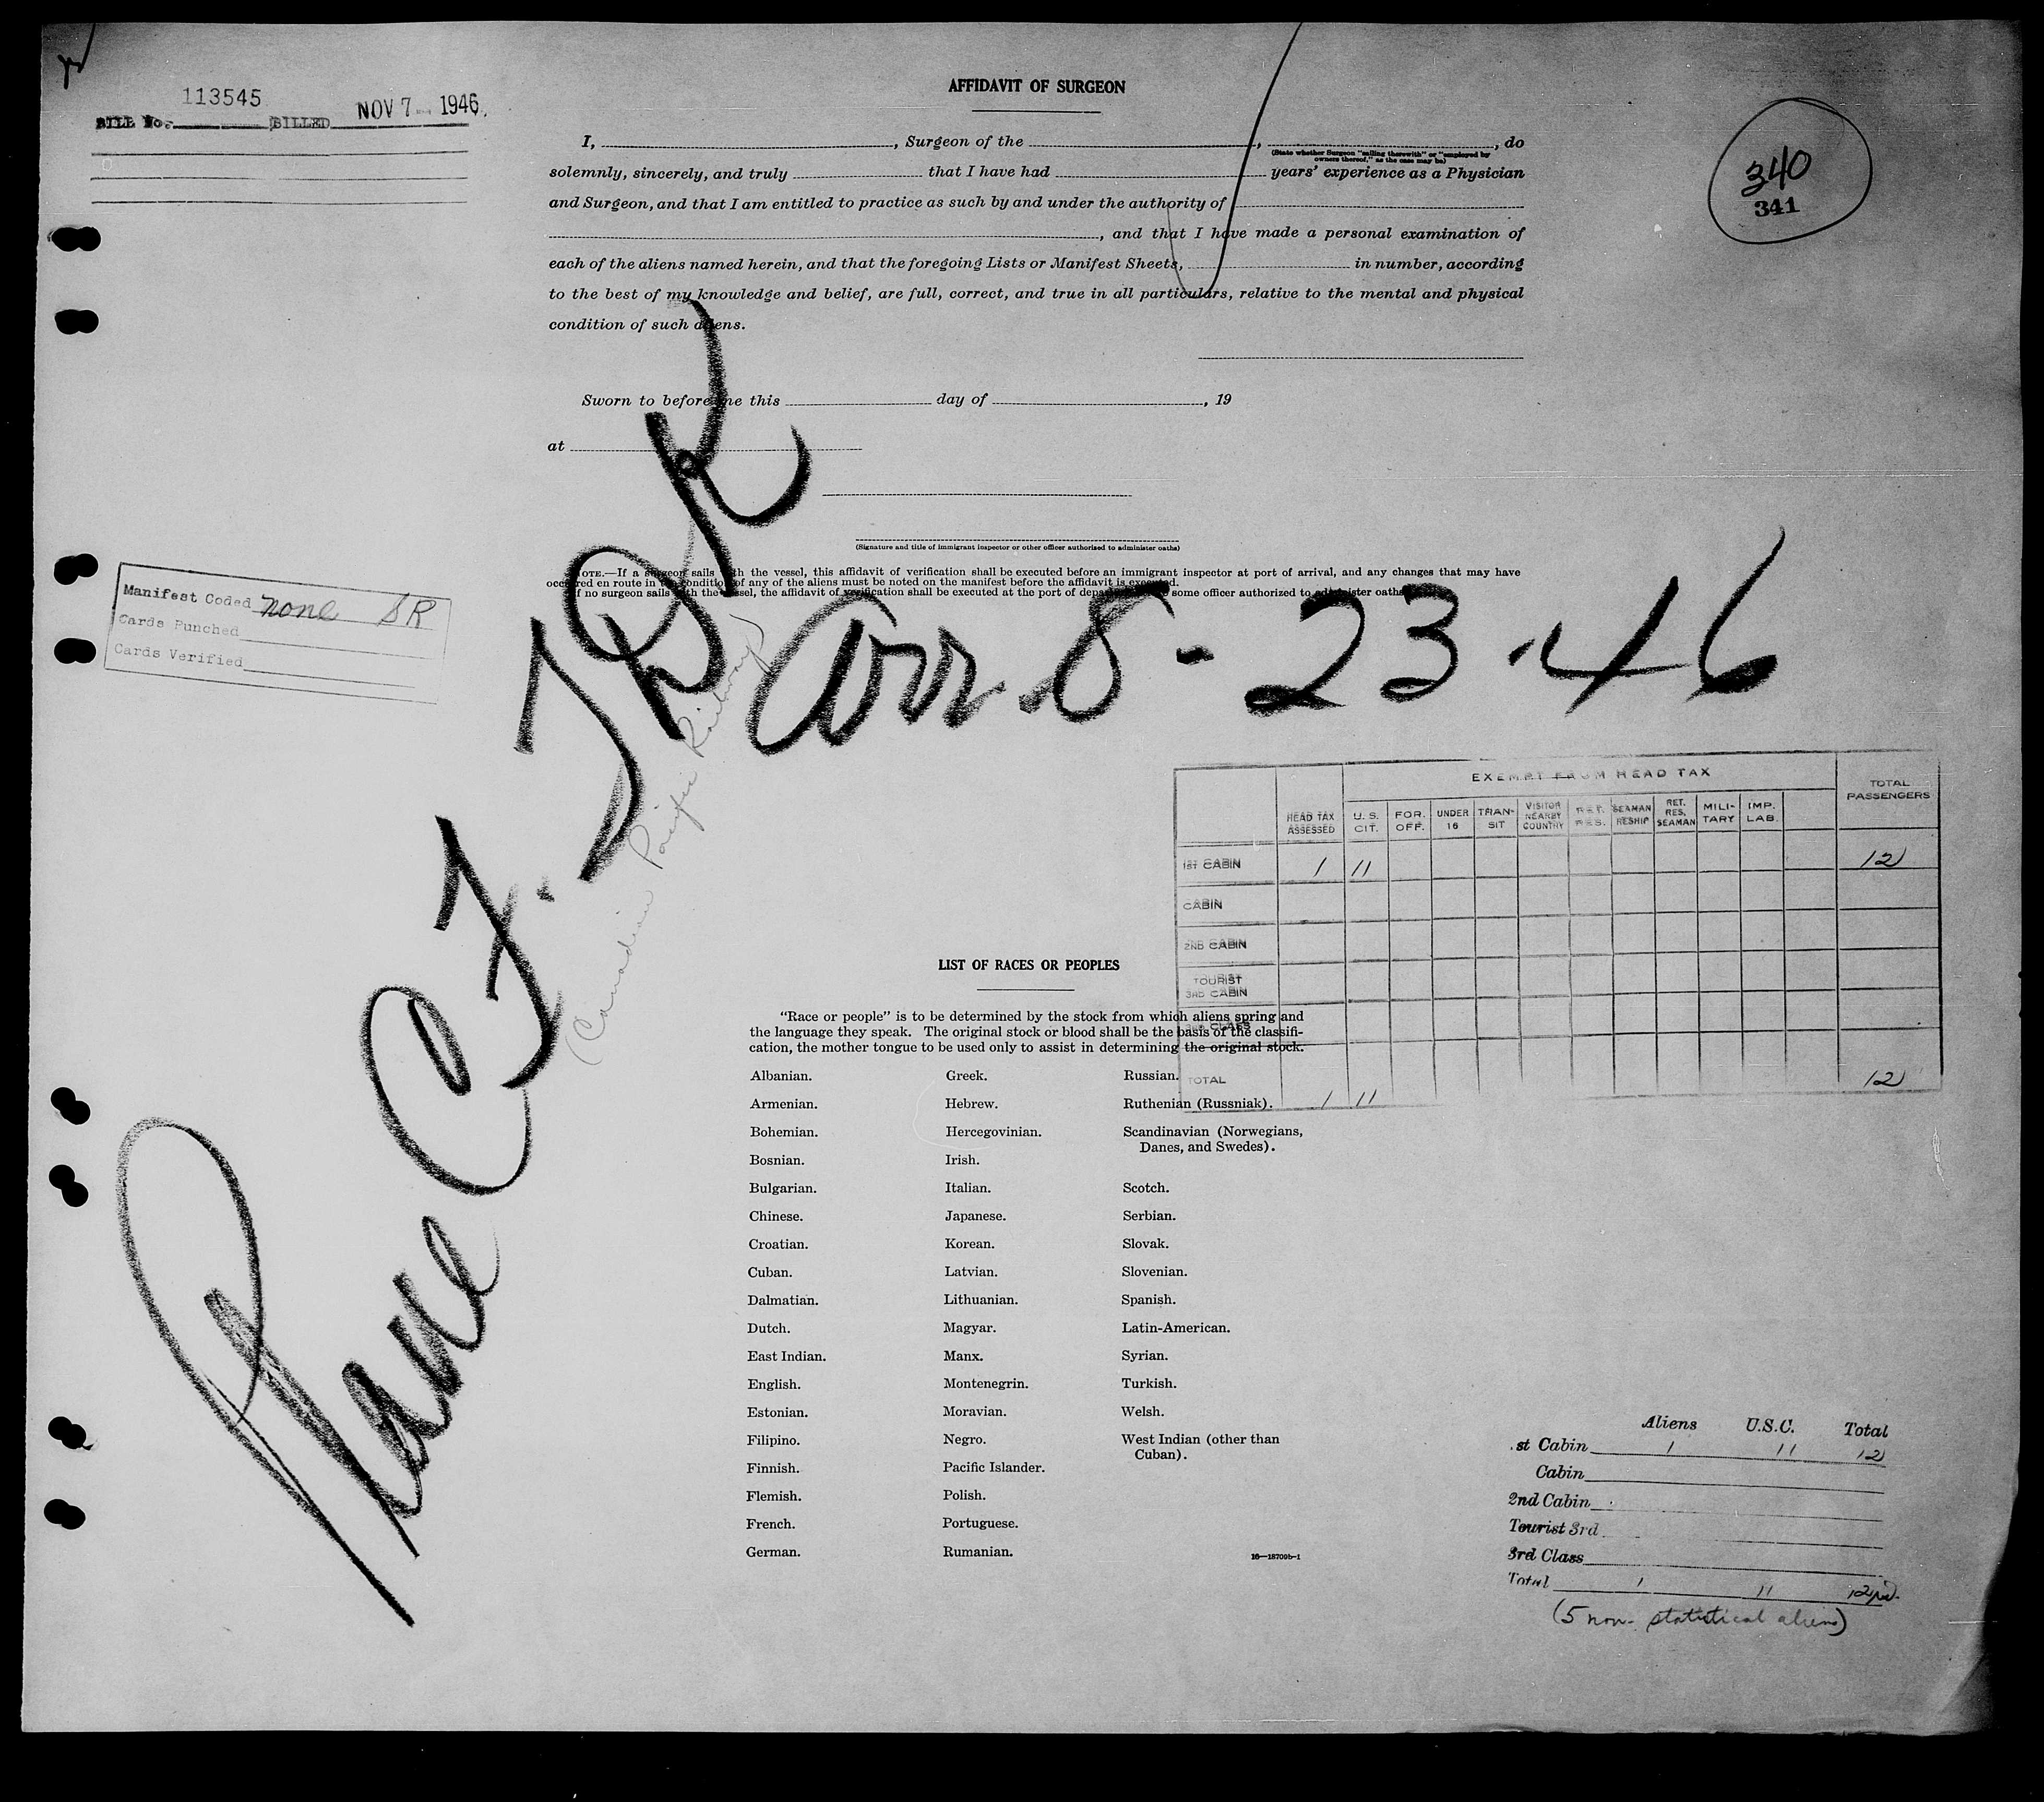 AFFIDAVIT OF SURGEON
113545
BILL No. BILLED NOV 7 1946
340
341
I, , Surgeon of the , , do
(State whether Surgeon "sailing therewith" or "employed by
owners thereof," as the case may be)
solemnly, sincerely, and truly that I have had years' experience as a Physician
and Surgeon, and that I am entitled to practice as such by and under the authority of
, and that I have made a personal examination of
each of the aliens named herein, and that the foregoing Lists or Manifest Sheets, in number, according
to the best of my knowledge and belief, are full, correct, and true in all particulars, relative to the mental and physical
condition of such aliens.
Sworn to before me this day of , 19
at
(Signature and title of immigrant inspector or other officer authorized to administer oaths)
NOTE.—If a surgeon sails with the vessel, this affidavit of verification shall be executed before an immigrant inspector at port of arrival, and any changes that may have
occurred en route in the condition of any of the aliens must be noted on the manifest before the affidavit is executed.
If no surgeon sails with the vessel, the affidavit of verification shall be executed at the port of departure before some officer authorized to administer oaths.
Manifest Coded none SR
Cards Punched
Cards Verified
Plane CF.
(Canadian Pacific Railway)
Arr. 8-23-46
EXEMPT FROM HEAD TAX
HEAD TAX ASSESSED U.S. CIT. FOR. OFF. UNDER 16 TRAN-SIT VISITOR NEARBY COUNTRY RET. RES. SEAMAN RESHIP RET. RES. SEAMAN MILI-TARY IMP. LAB. TOTAL PASSENGERS
1ST CABIN 1 11 12
CABIN
2ND CABIN
TOURIST
3RD CABIN
3RD CLASS
TOTAL 1 11 12
LIST OF RACES OR PEOPLES
"Race or people" is to be determined by the stock from which aliens spring and
the language they speak. The original stock or blood shall be the basis of the classifi-
cation, the mother tongue to be used only to assist in determining the original stock.
Albanian. Greek. Russian.
Armenian. Hebrew. Ruthenian (Russniak).
Bohemian. Hercegovinian. Scandinavian (Norwegians,
Danes, and Swedes).
Bosnian. Irish.
Bulgarian. Italian. Scotch.
Chinese. Japanese. Serbian.
Croatian. Korean. Slovak.
Cuban. Latvian. Slovenian.
Dalmatian. Lithuanian. Spanish.
Dutch. Magyar. Latin-American.
East Indian. Manx. Syrian.
English. Montenegrin. Turkish.
Estonian. Moravian. Welsh.
Filipino. Negro. West Indian (other than
Cuban).
Finnish. Pacific Islander.
Flemish. Polish.
French. Portuguese.
German. Rumanian.
16—18709b-1
Aliens U.S.C. Total
st Cabin 1 11 12
Cabin
2nd Cabin
Tourist 3rd
3rd Class
Total 1 11 12
(5 non-statistical aliens)